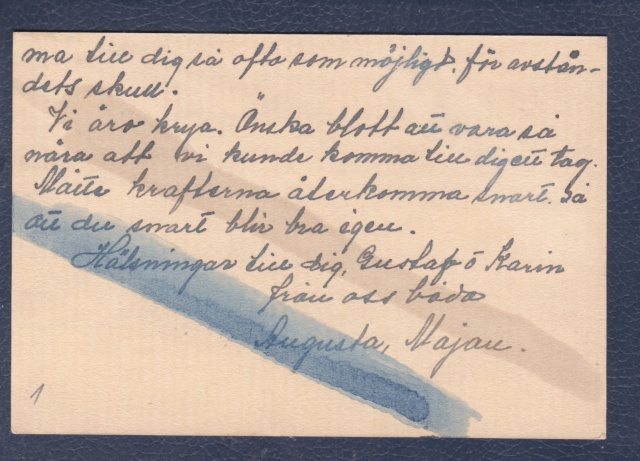 ma till dig så ofta som möjligt. för avstån-
dets skull.
Vi äro krya. Önska blott att vara så
nära att vi kunde komma till dig ett tag.
Måtte krafterna återkomma snart. Så
att du snart blir bra igen.
Hälsningar till dig, Gustaf o Karin
från oss båda
Augusta, Majan.
1